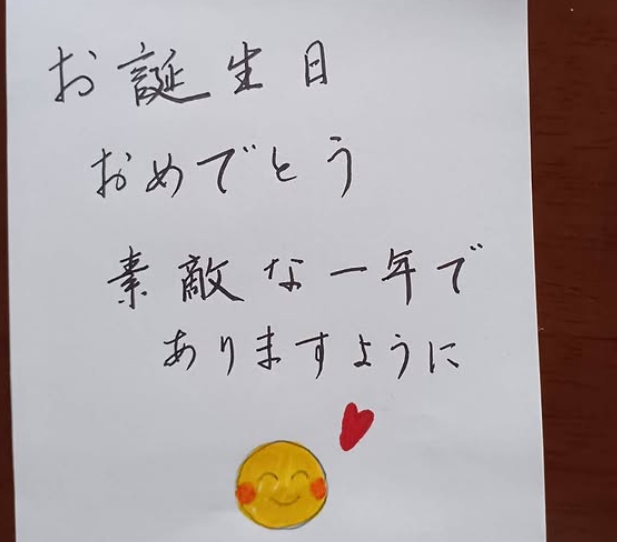 お誕生日
おめでとう
素敵な一年で
ありますように